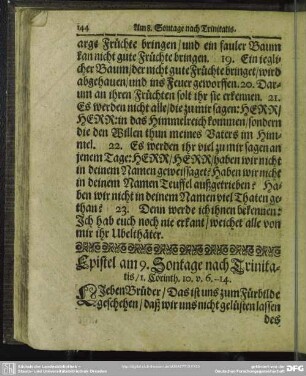 144 Am 8. Sontage nach Trinitatis.
args Früchte bringen/ und ein fauler Baum
kan nicht gute Früchte bringen. 19. Ein jegli-
cher Baum/ der nicht gute Früchte bringet/ wird
abgehauen/ und ins Feuer geworffen. 20. Dar-
um an ihren Früchten solt ihr sie erkennen. 21.
Es werden nicht alle/ die zu mir sagen: HERR/
HERR: in das Himmelreich kommen/ sondern
die den Willen thun meines Vaters im Him-
mel. 22. Es werden ihr viel zu mir sagen an
jenem Tage: HERR/ HERR/ haben wir nicht
in deinem Namen geweissaget? Haben wir nicht
in deinem Namen Teuffel außgetrieben? Ha-
ben wir nicht in deinem Namen viel Thaten ge-
than? 23. Denn werde ich ihnen bekennen:
Ich hab euch noch nie erkant/ weichet alle von
mir ihr Ubelthäter.
Epistel am 9. Sontage nach Trinita-
tis/ 1. Corinth. 10. v. 6.-14.
Lieben Brüder/ Das ist uns zum Fürbilde
geschehen/ daß wir uns nicht gelüsten lassen
des